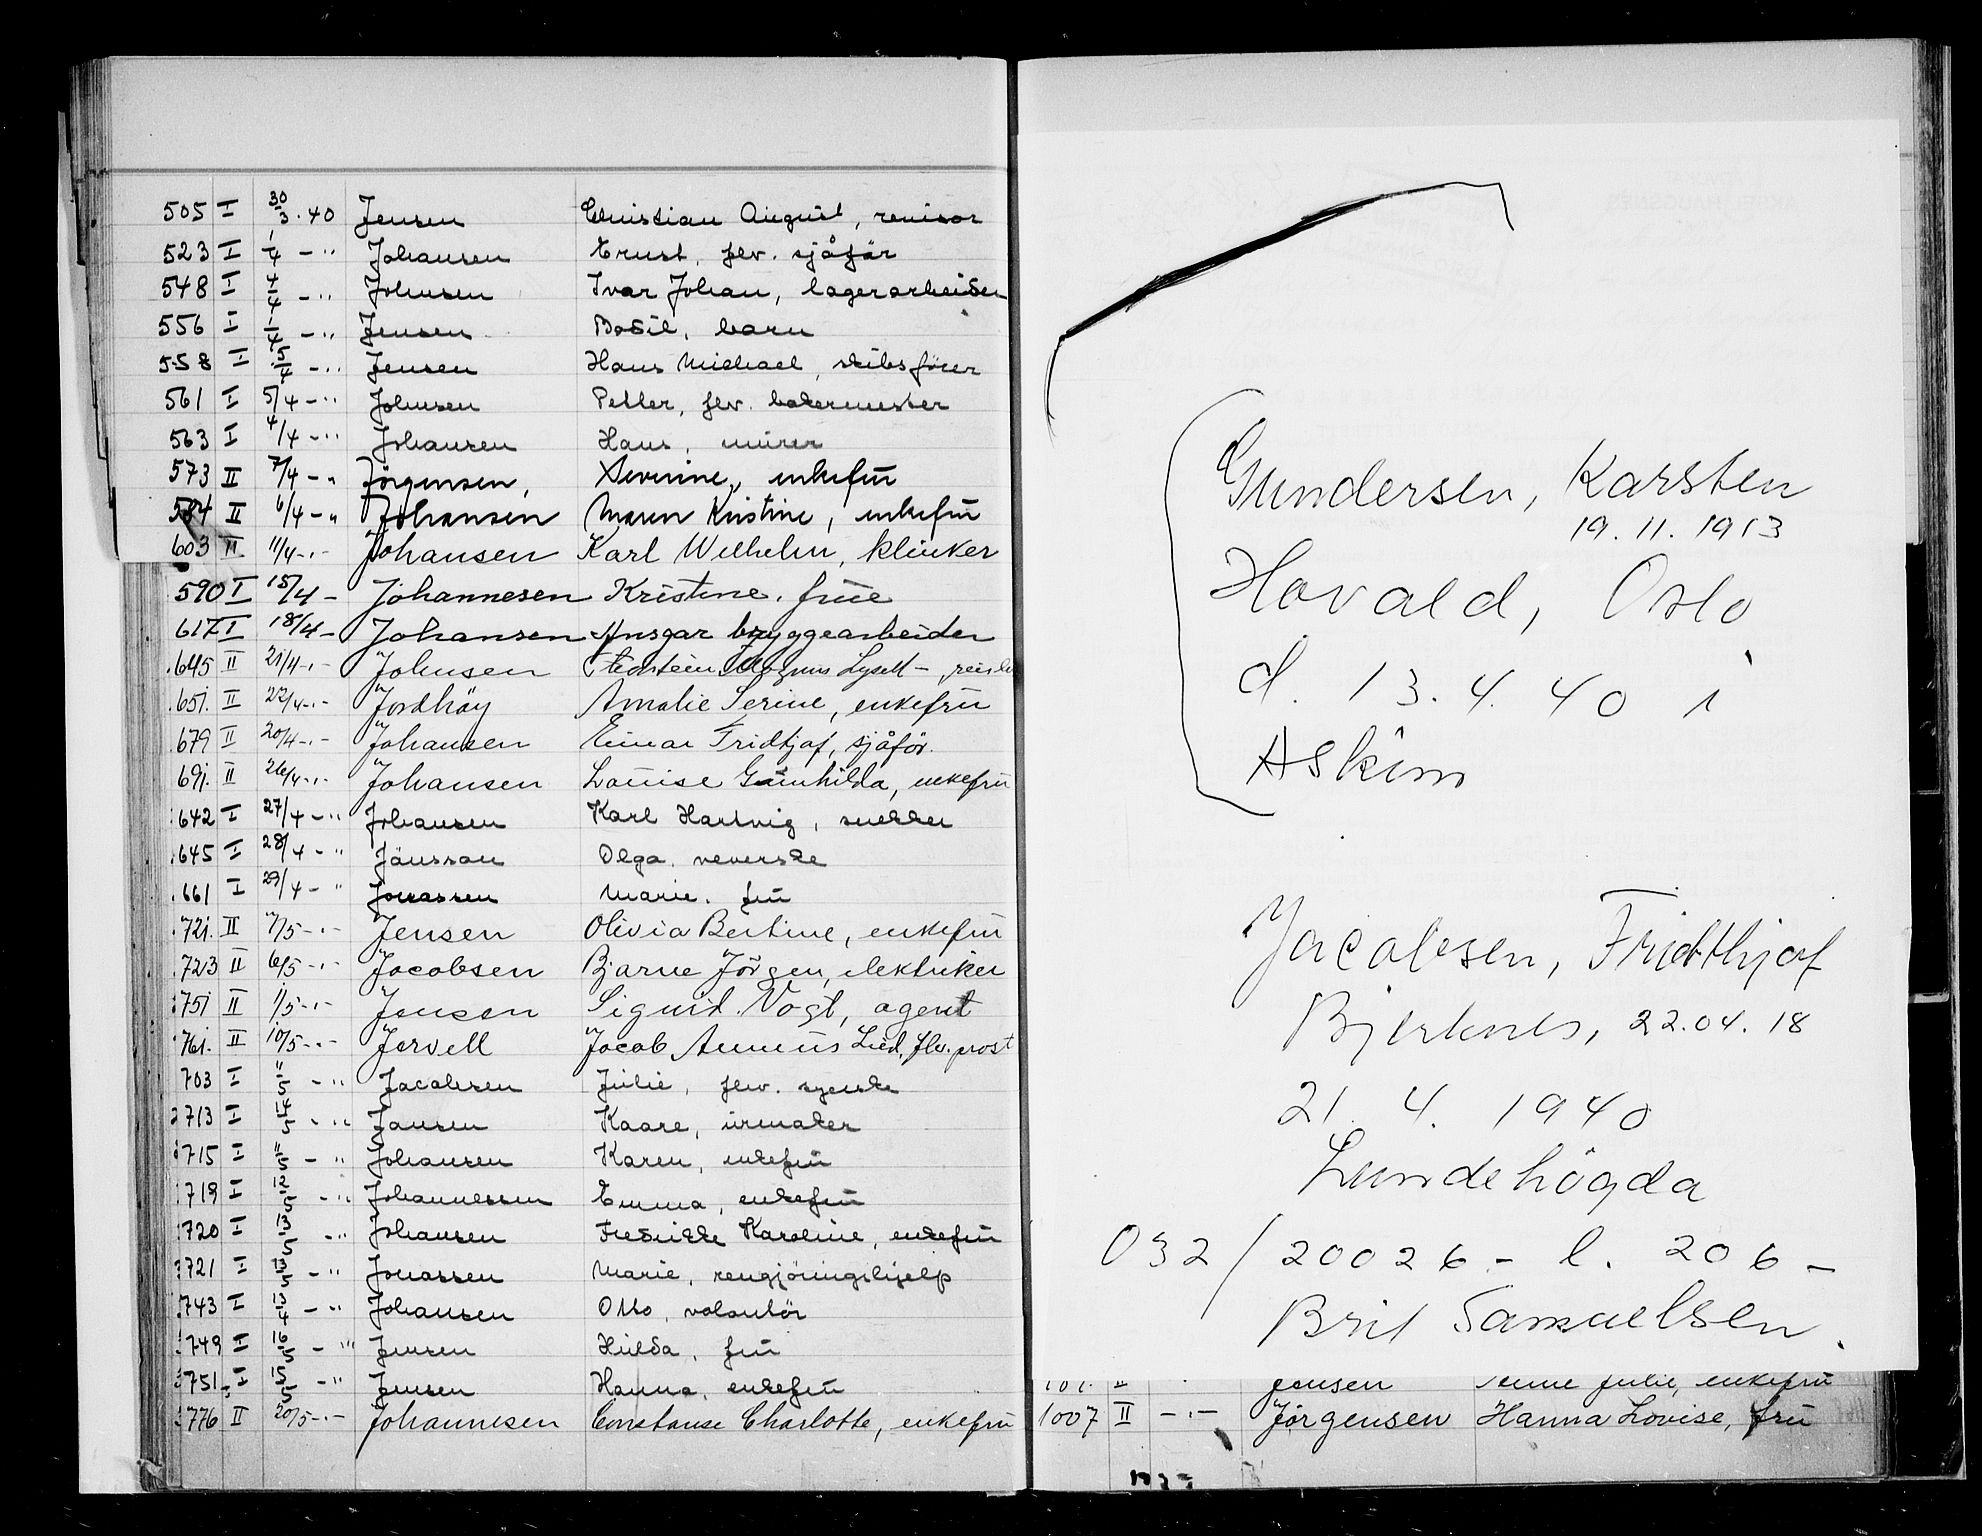 505 I 30/3.40 Jensen Christian August, revisor
523 I 1/4 - " Johansen Ernst, flv. sjåfør
548 I 4/4 - " Johnsen Ivar Johan, lagerarbeider
556 I 1/4 - " Jensen Bodil, barn
558 I 5/4 - " Jensen Hans Michael, skibsförer
561 I 5/4 - " Johnsen Petter, flv. bakermester
563 I 4/4 - " Johansen Hans, murer
573 II 7/4 - " Jörgensen, Severine, enkefru
584 II 6/4 - " Johansen Maren Kristine, enkefru
603 II 11/4 - " - Johansen Karl Wilhelm, klinker
590 I 15/4 - Johannesen Kristine, frue
617 I 18/4 - Johansen Ansgar bryggearbeider
645 II 21/4 - " - Johnsen Magnus
651. II 22/4 - " - Jordhöy Amalie Serine, enkefru
679 II 20/4 - " - Johansen Einar Fridtjof, sjåför.
691. II 26/4 - " - Johansen Louise Gunhilda, enkefru
642 I 27/4 - " Johansen Karl Hartvig, snekker
645 I 28/4 - " Jönsson Olga, veverske
661 I 29/4 - " Jonassen Marie, fru
721. II 7/5 - " - Jensen Olivia Bertine, enkefru
723 II 6/5 - " - Jacobsen Bjarne Jörgen, elektriker
751 II 1/5 - " - Jensen Sigurd Vogt, agent
761. II 10/5 - " - Jervell Jacob Lied, flv. prost
703 I 11/5 - " Jacobsen Julie, flv. syerske
713 I 14/5 - " Jansen Kaare, urmaker
715 I 11/5 - " Johansen Karen, enkefru
719 I 12/5 - " Johannessen Emma, enkefru
720 I 13/5 - " Johansen Fredrikke Karoline, enkefru
721 I 13/5 - " Jonassen Marie, rengjöringshjelp
743 I 13/4 - " Johansen Otto, volontör
749 I 16/5 - " Jensen Hulda, fru
751 I 15/5 - " Jensen Hanna, enkefru
776 II 20/5 - " - Johannesen Constanse Charlotte, enkefru
Gundersen, Karsten
19.11.1913
Hovald, Oslo
d. 13.4.40 i
Askim
Jacobsen, Fridthjof
Bjerknes, 22.04.18
21.4.1940
Lundehögda
032/20026 - l. 206 -
Brit Samuelsen.
II Jensen Julie, enkefru
1007 II - " - Jörgensen Hanna Lovise, fru